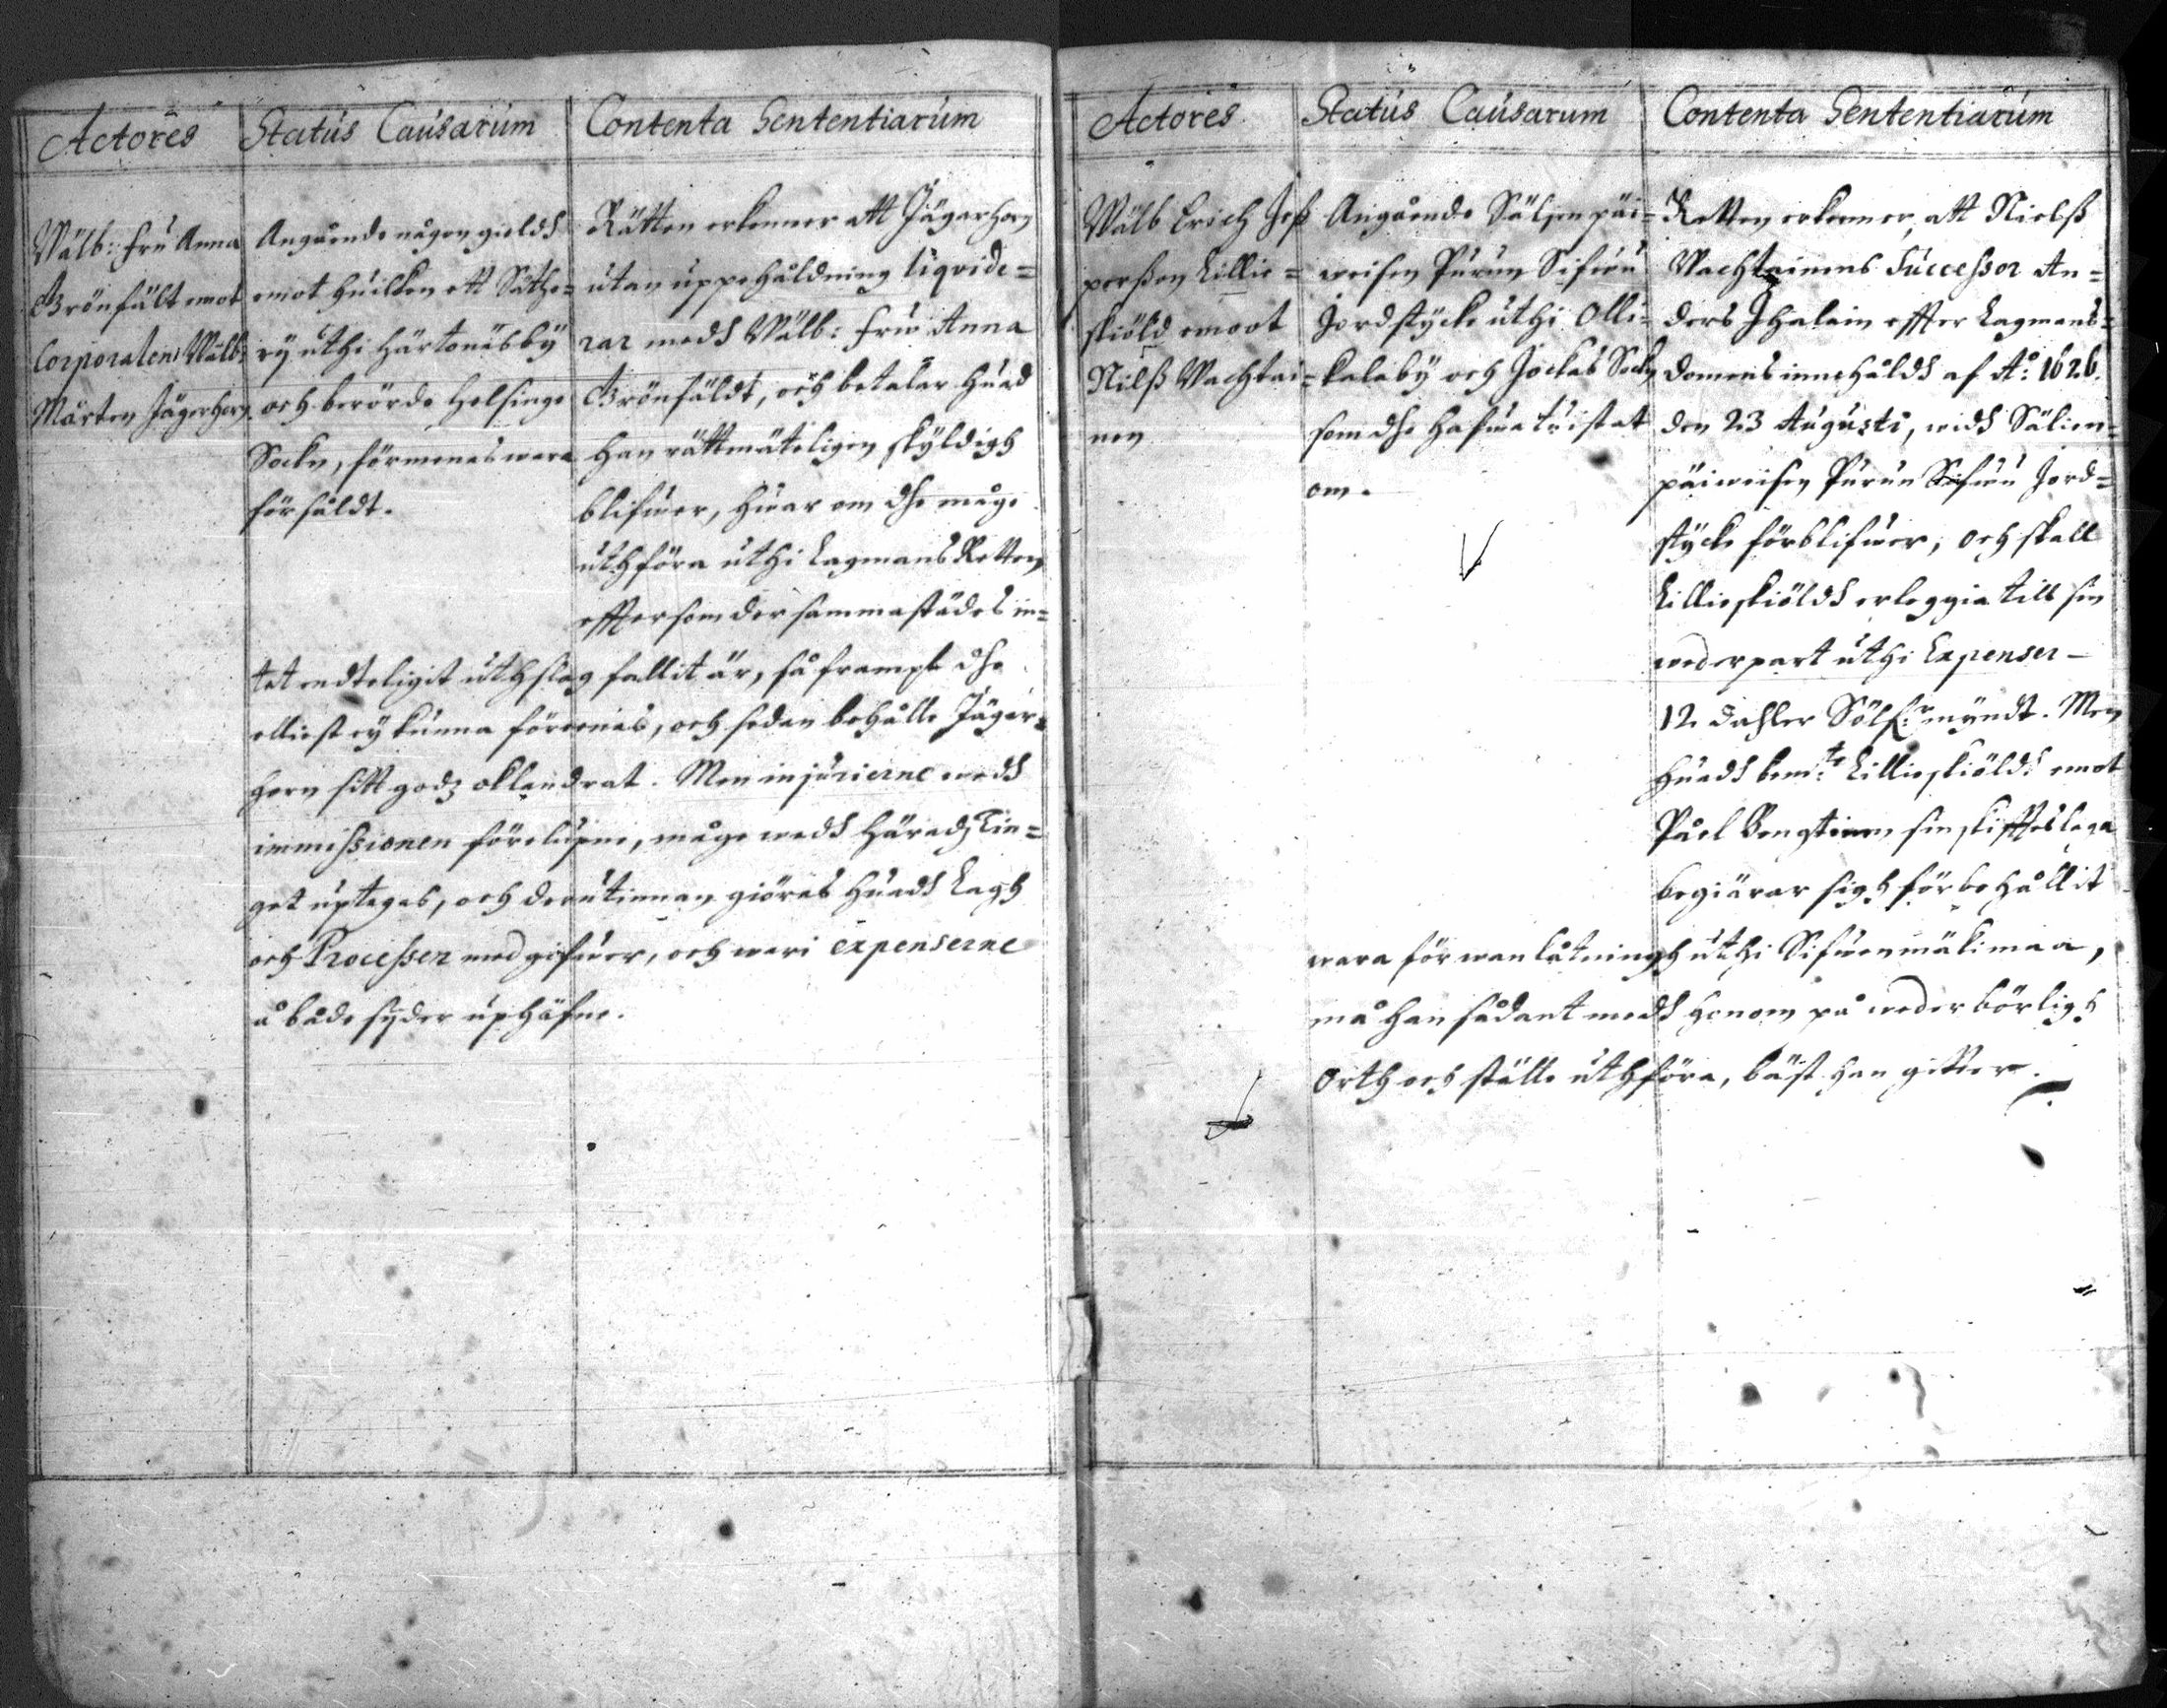 Actores
Status Causarum
Contenta Sententiarum
Wälb: Fru Anna
Grönfält emot
Corporalen Wälb:
Mårten Jägerhorn
Angående någon gieldh
emot huilken ett Säthe=
rÿ uthi Härtonäsbÿ
och berörde Helsinge
Sockn, förmenas wara
försåldt.
Rätten erkenner att Jägarhorn
utan uppehåldning liqvide=
rar medh Wälb: Fru Anna
Grönfäldt, och betalar huad
han rättmäteligen skÿldigh
blifwer, hwar om dhe måge
uthföra uthi Lagmans Retten
effter som der sammastädes in=
tet endteligit uthslag fallit är, så frampt dhe
elliest eÿ kunna föreenas, och sedan behålle Jäger=
horn sitt godz oklandrat. Men injurierne wedh
immissionen förelupne, måge wedh Häradz Tin=
get uptagas, och derutinnan giöras huadh Lagh
och Processer medgifwer, och wari expenserne
å både sÿder uphäfne.
Actores
Status Causarum
Contenta Sententiarum
Wälb Erich Jesp
persson Lillie=
skiöld emoot
Nilss Wachtai=
nen
Angående Säljenpäi=
weisen Purun Sifwu
Jordstÿcke uthi Olli=
kalabÿ och Jockas Sockn
som dhe hafwa twistat
om.
Retten erkenner, att Nielss
Wachtainens Successor An=
ders Ihalain effter Lagmans=
domens innehåldh af Aº 1626.
den 23 Augusti, widh Sälien=
päiweisen Purun Sifwu Jord=
stÿcke förblifwer, och skall
Lillieskiöldh erleggia till sin
wederpart uthi Expenser
12 dahler Sölf:r mÿndt. Men
huadh bem:te Lillieskiöldh emot
Påel Bengtinen sin skifftes laga
begiärar sigh förbehållit
wara för wanlåtningh uthi Sifwenmäkimaa,
må han sådant medh honom på wederbörligh
Orth och ställe uthföra, bäst han gitter.